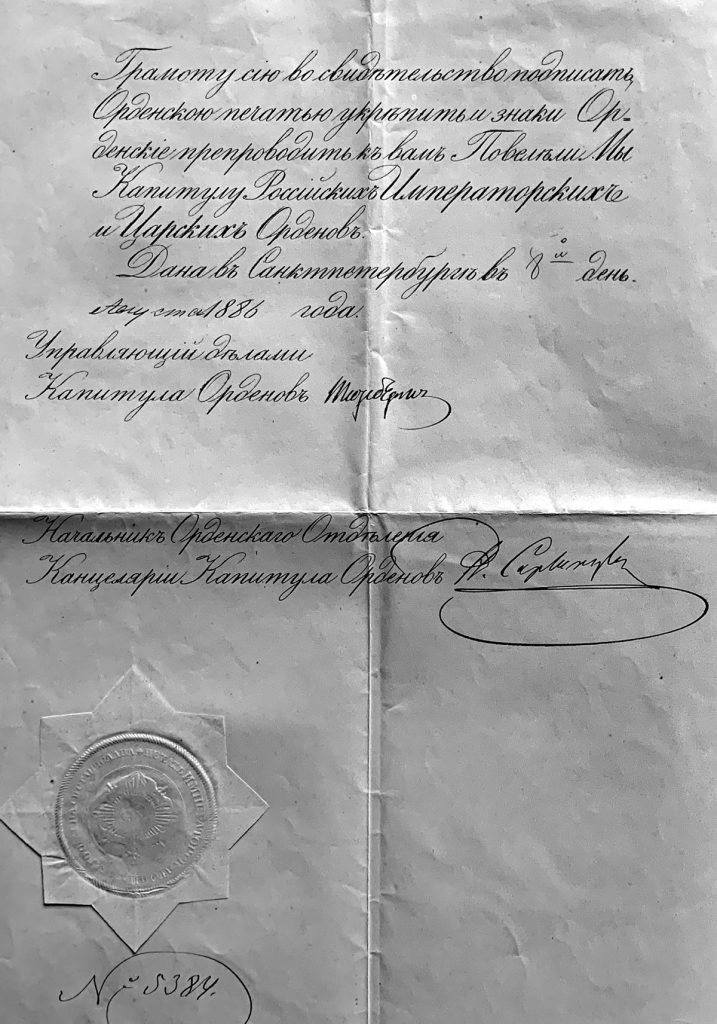 Грамоту сію во свидѣтельство подписать,
Орденскою печатью укрѣпить и знаки Ор-
денскіе препроводить къ вамъ Повелѣли Мы
Капитулу Россійскихъ Императорскихъ
и Царскихъ Орденовъ.
Дана въ Санктпетербургѣ въ 8й день.
Августа 1886 года.
Управляющій дѣлами
Капитула Орденовъ
Начальникъ Орденскаго Отдѣленія
Канцеляріи Капитула Орденовъ
№ 5384.